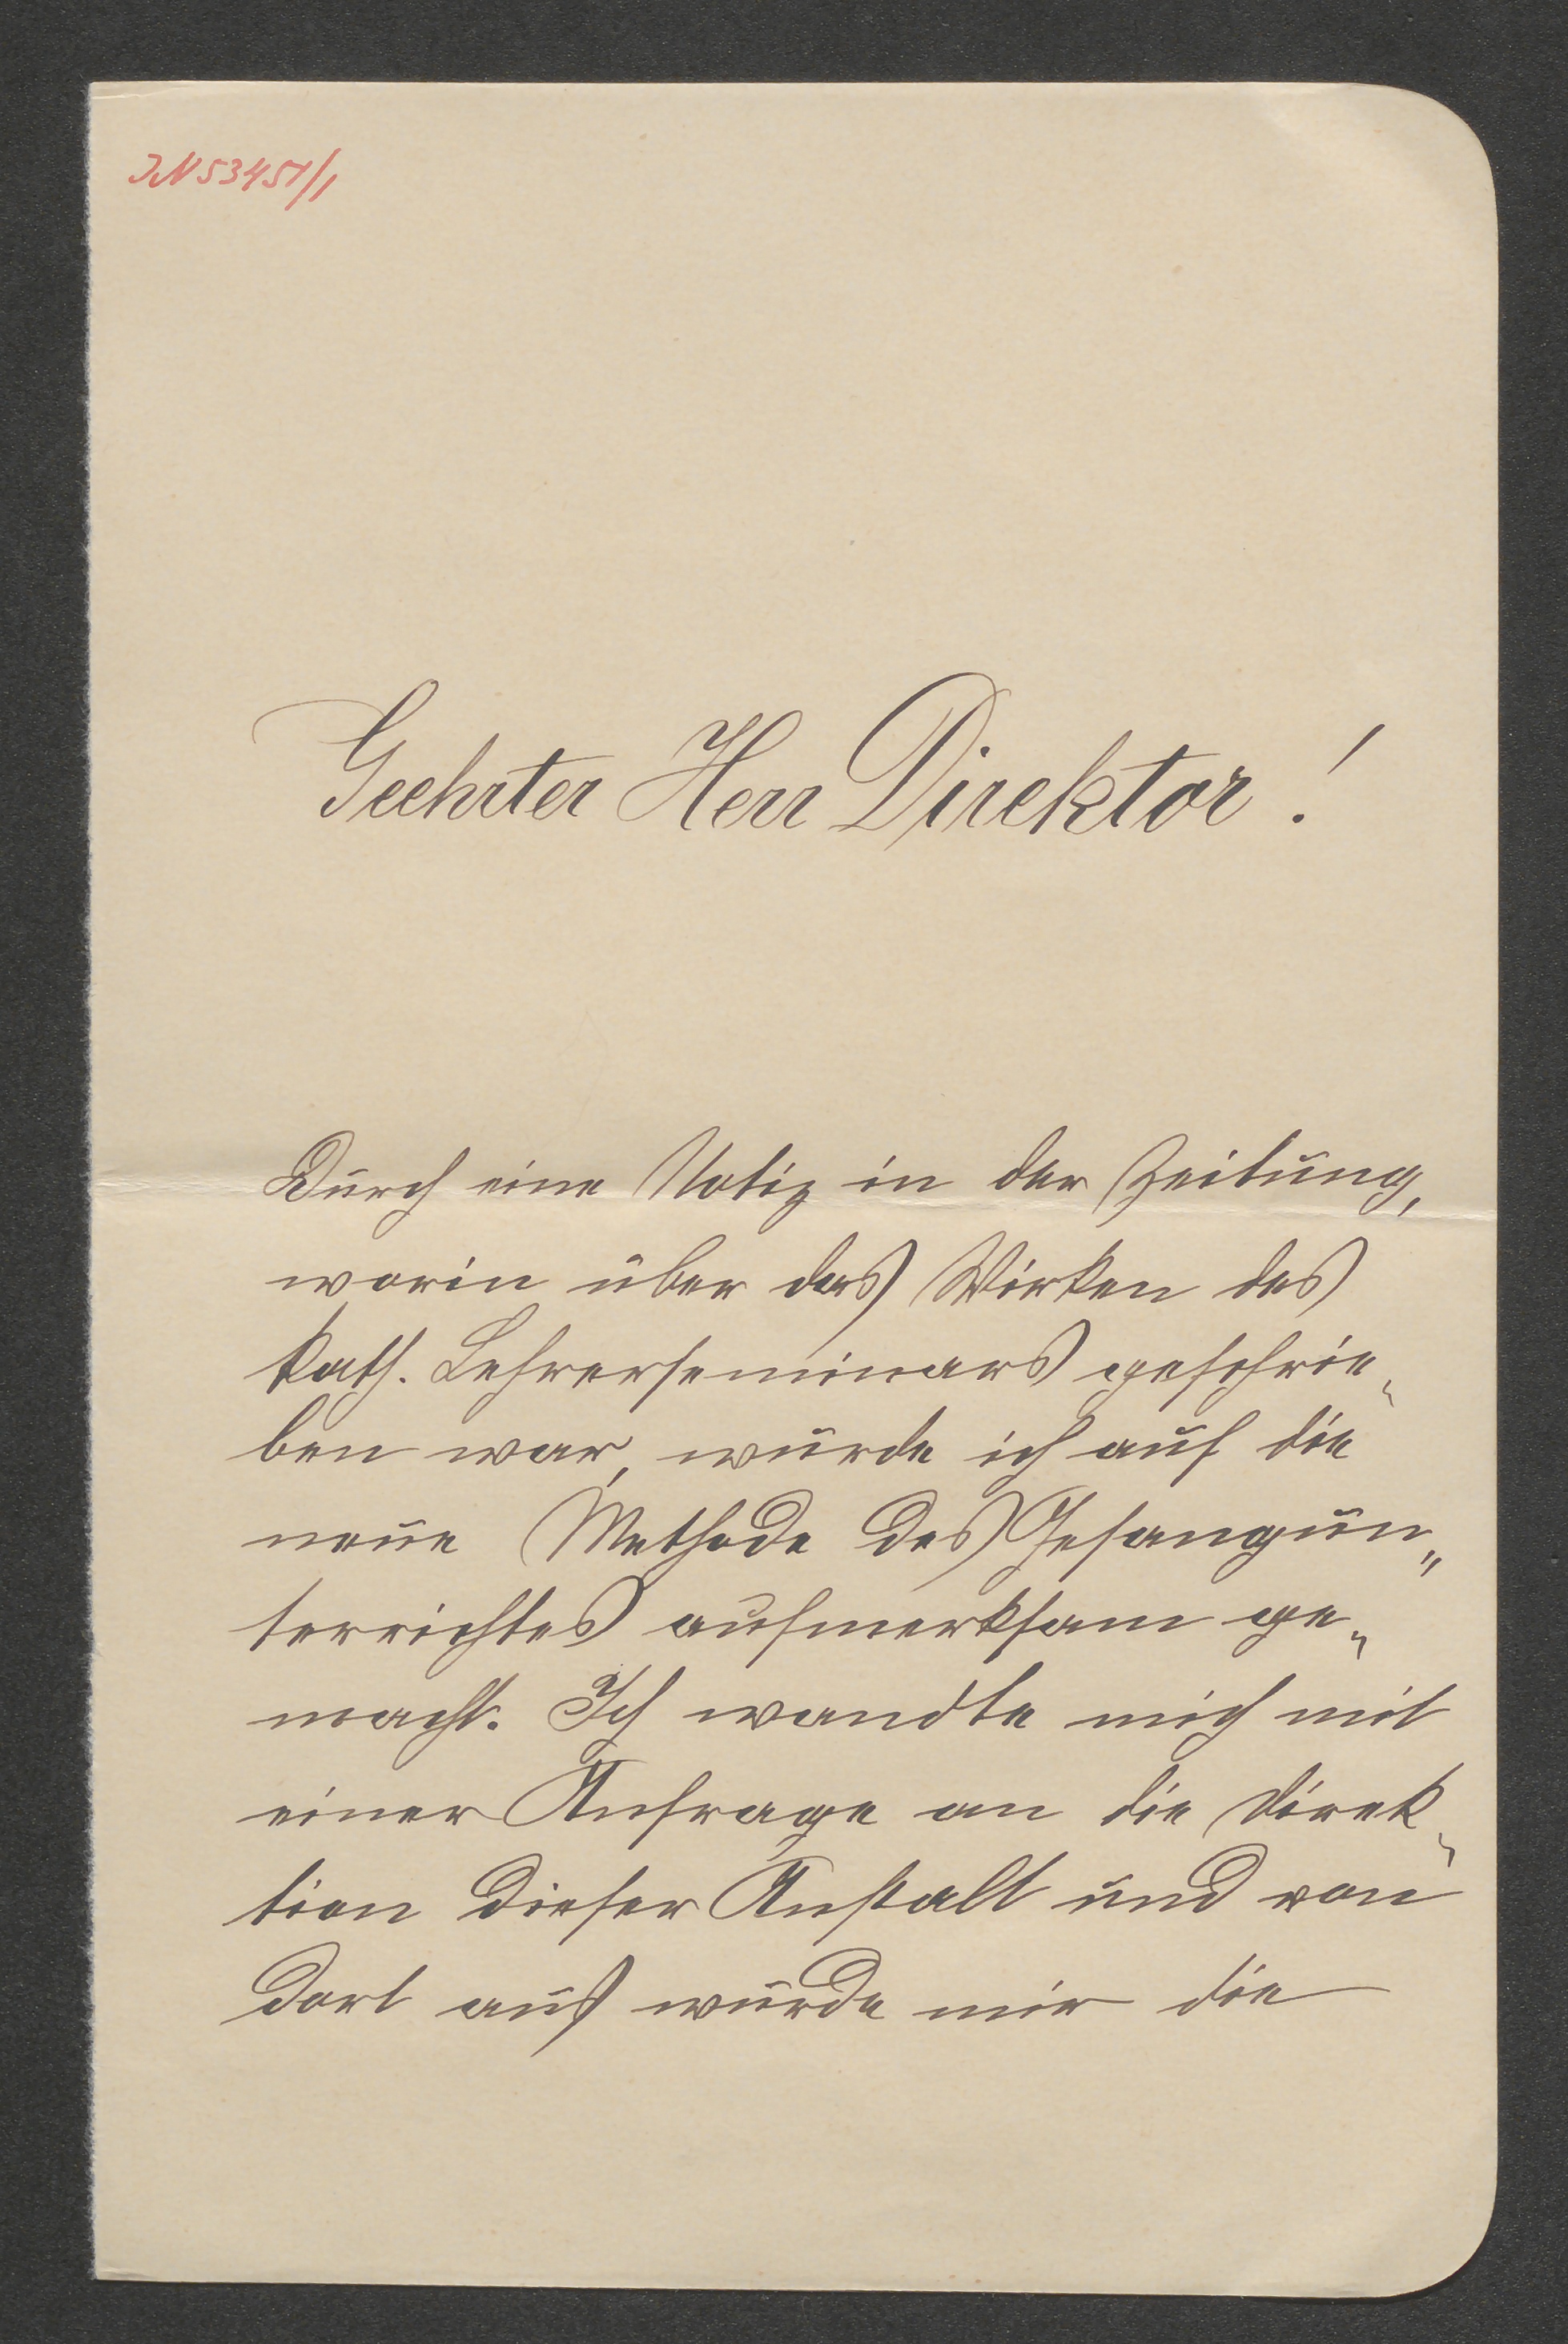 JN 53451/1
Geehrter Herr Direktor!
Durch eine Notiz in der Zeitung,
worin über das Wirken des
kath. Lehrerseminars geschrie„
ben war, wurde ich auf die
neue Methode des Gesangun„
terrichtes aufmerksam ge„
macht. Ich wandte mich mit
einer Anfrage an die Direk„
tion dieser Anstalt und von
dort aus wurde mir die